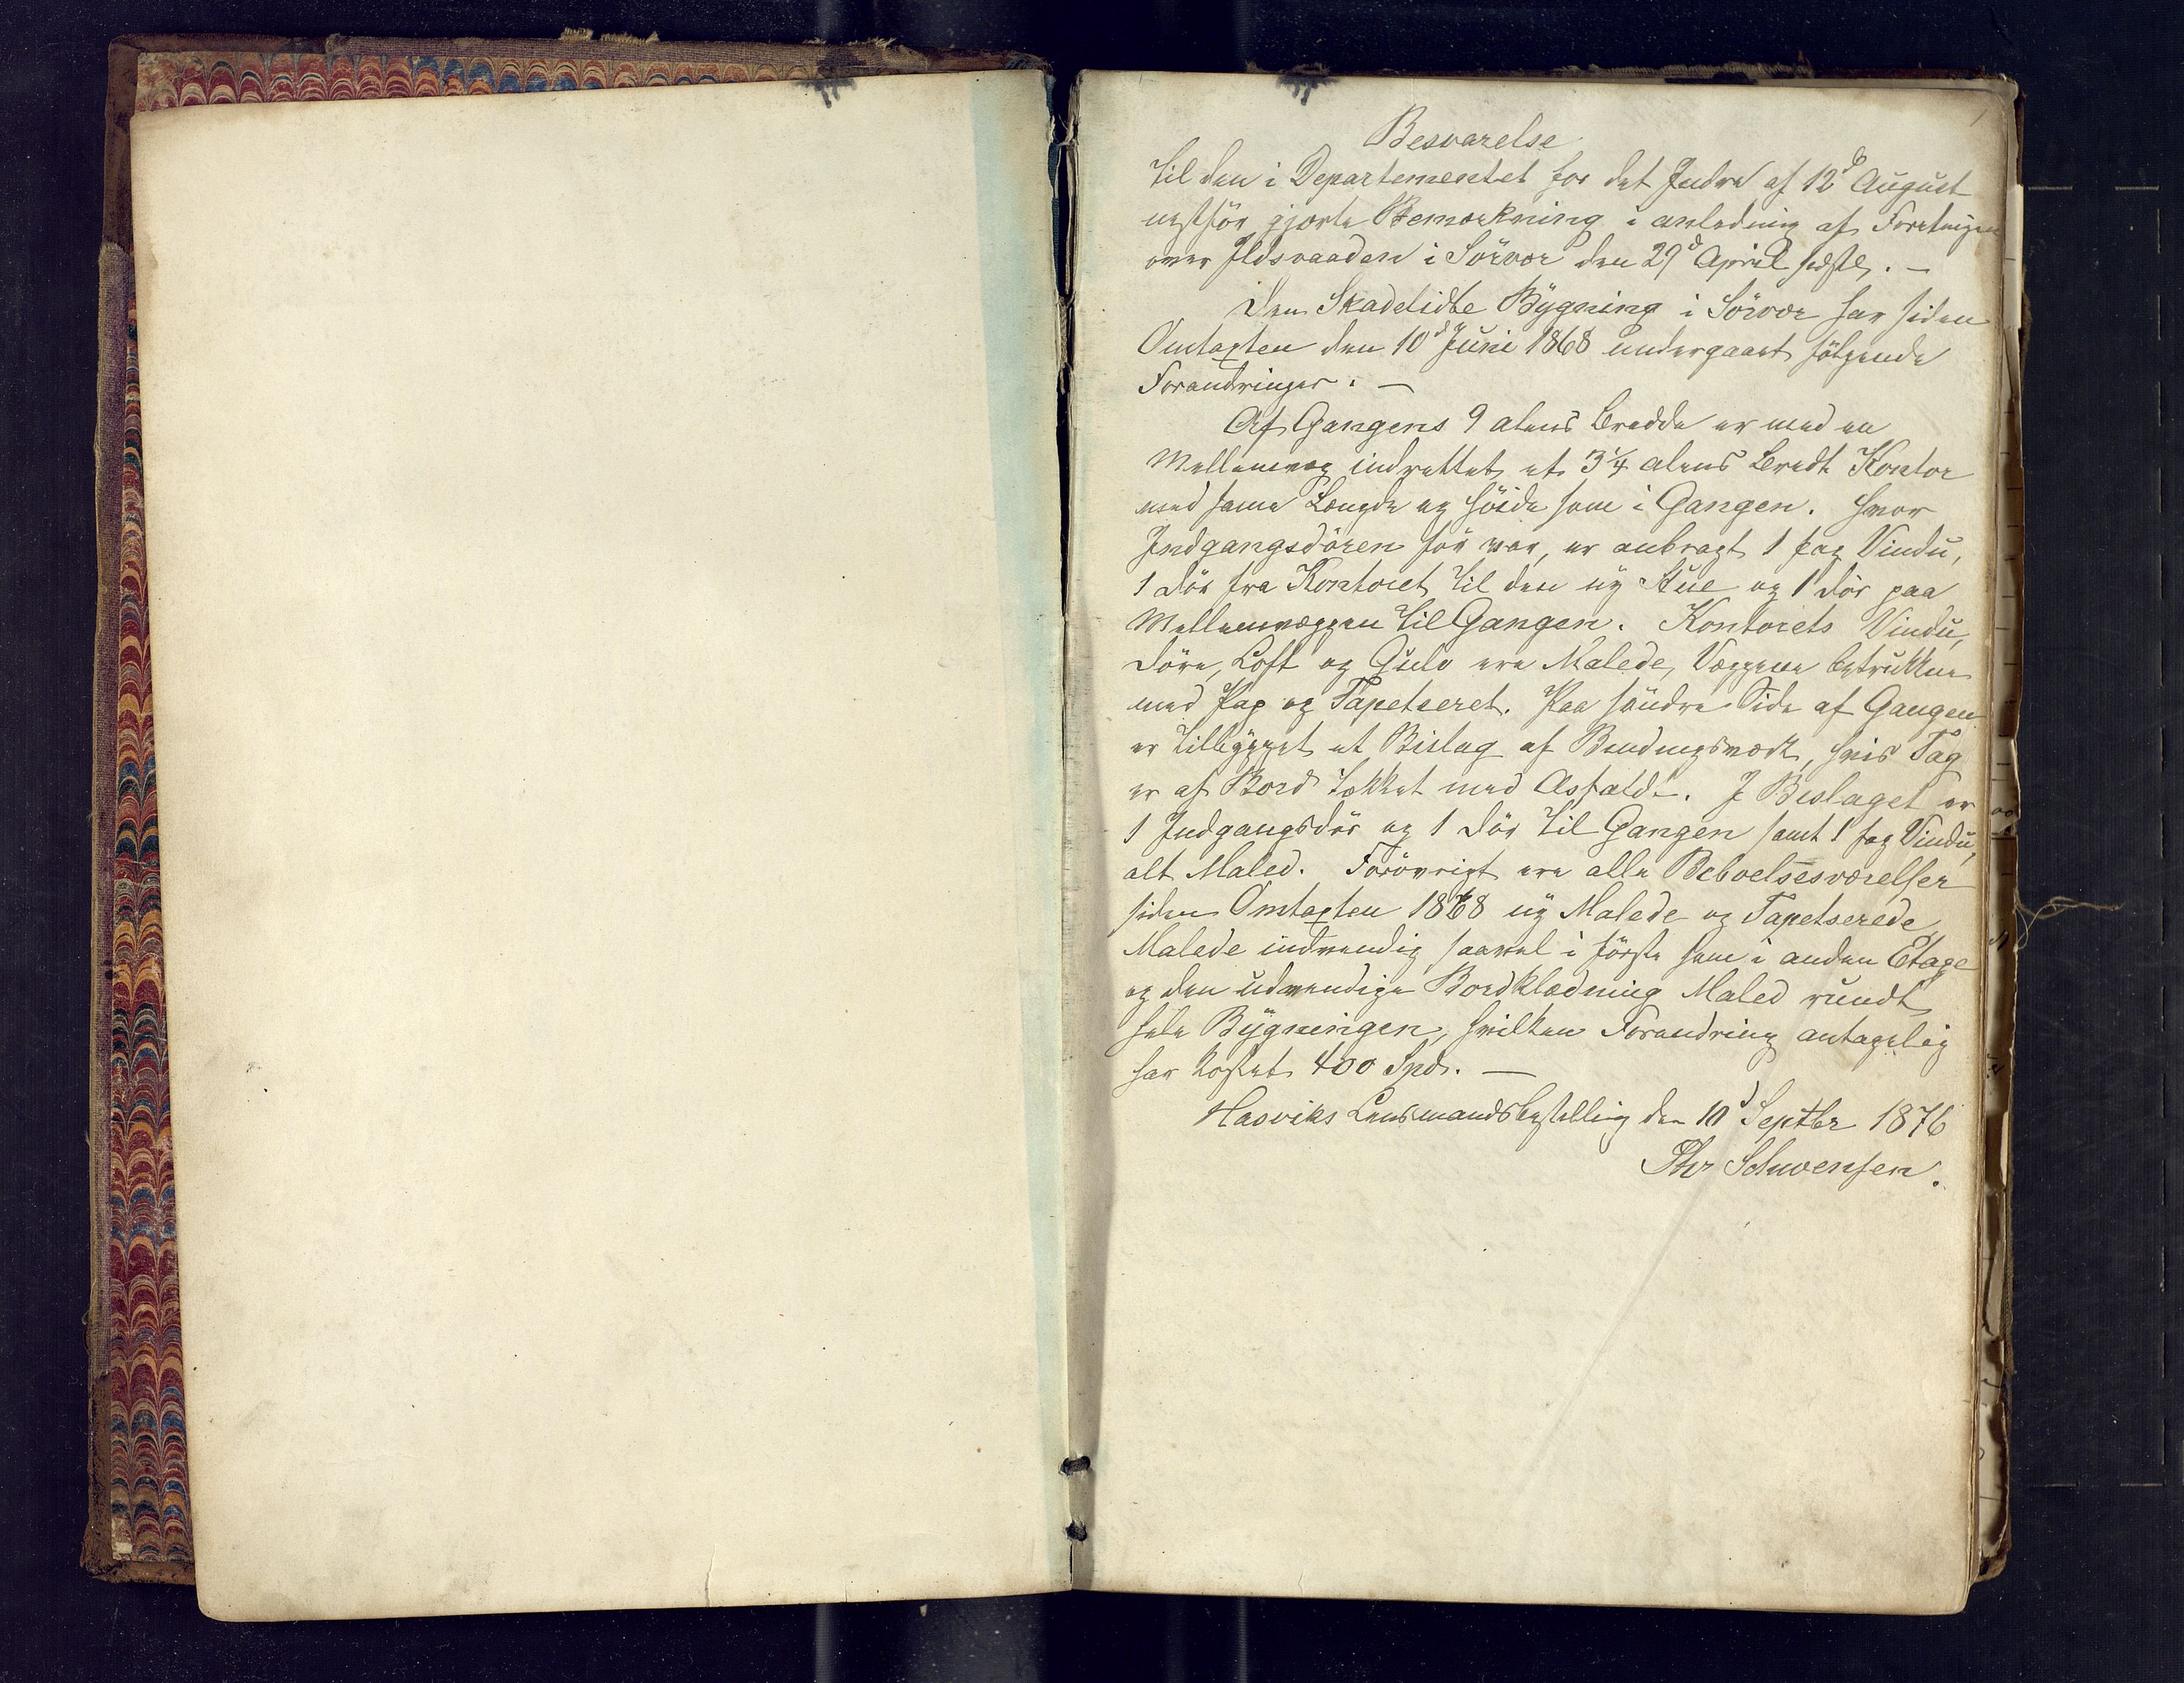 1
Besvarelse
til den i Departementet for det Indre af 12d August
næstfør gjorte Bemærkning i anledning af Forretningen
over Ildsvaaden i Sörvær den 29d April sidstl. —
Den Skadelidte Bÿgning i Sörvær har siden
Omtaxten den 10d Juni 1868 undergaaet fölgende
Forandringer. —
Af Gangens 9 alens Bredde er med en
Mellemvæg indrettet et 3¼ alens bredt Kontor
med samme Længde og Höide som i Gangen. Hvor
Indgangsdören för var, er anbragt 1 fag Vindu,
1 Dör fra Kontoret til den nÿ Stue og 1 dör paa
Mellemvæggen til Gangen. Kontorets Vindu,
Döre, Loft og Gulv ere Malede, Væggene betrukken
med Pap og Tapetseret. Paa söndre Side af Gangen
er tilbÿgget et Bislag af Bindingsværk, hvis Tag
er af Bord tækket med Asfaldt. I Beslaget er
1 Indgangsdör og 1 Dör til Gangen samt 1 fag Vindu,
alt Maled. Forövrigt ere alle Beboelsesværelser
siden Omtaxten 1868 nÿ Malede og Tapetserede,
Malede indvendig saavel i förste som i anden Etage
og den udvendige Bordklædning Maled rundt
hele Bÿgningen, hvilken Forandring antagelig
har kostet 400 Spd. —
Hasviks Lensmandsbestilling den 10d Septbr 1876
Thr Schwensen.